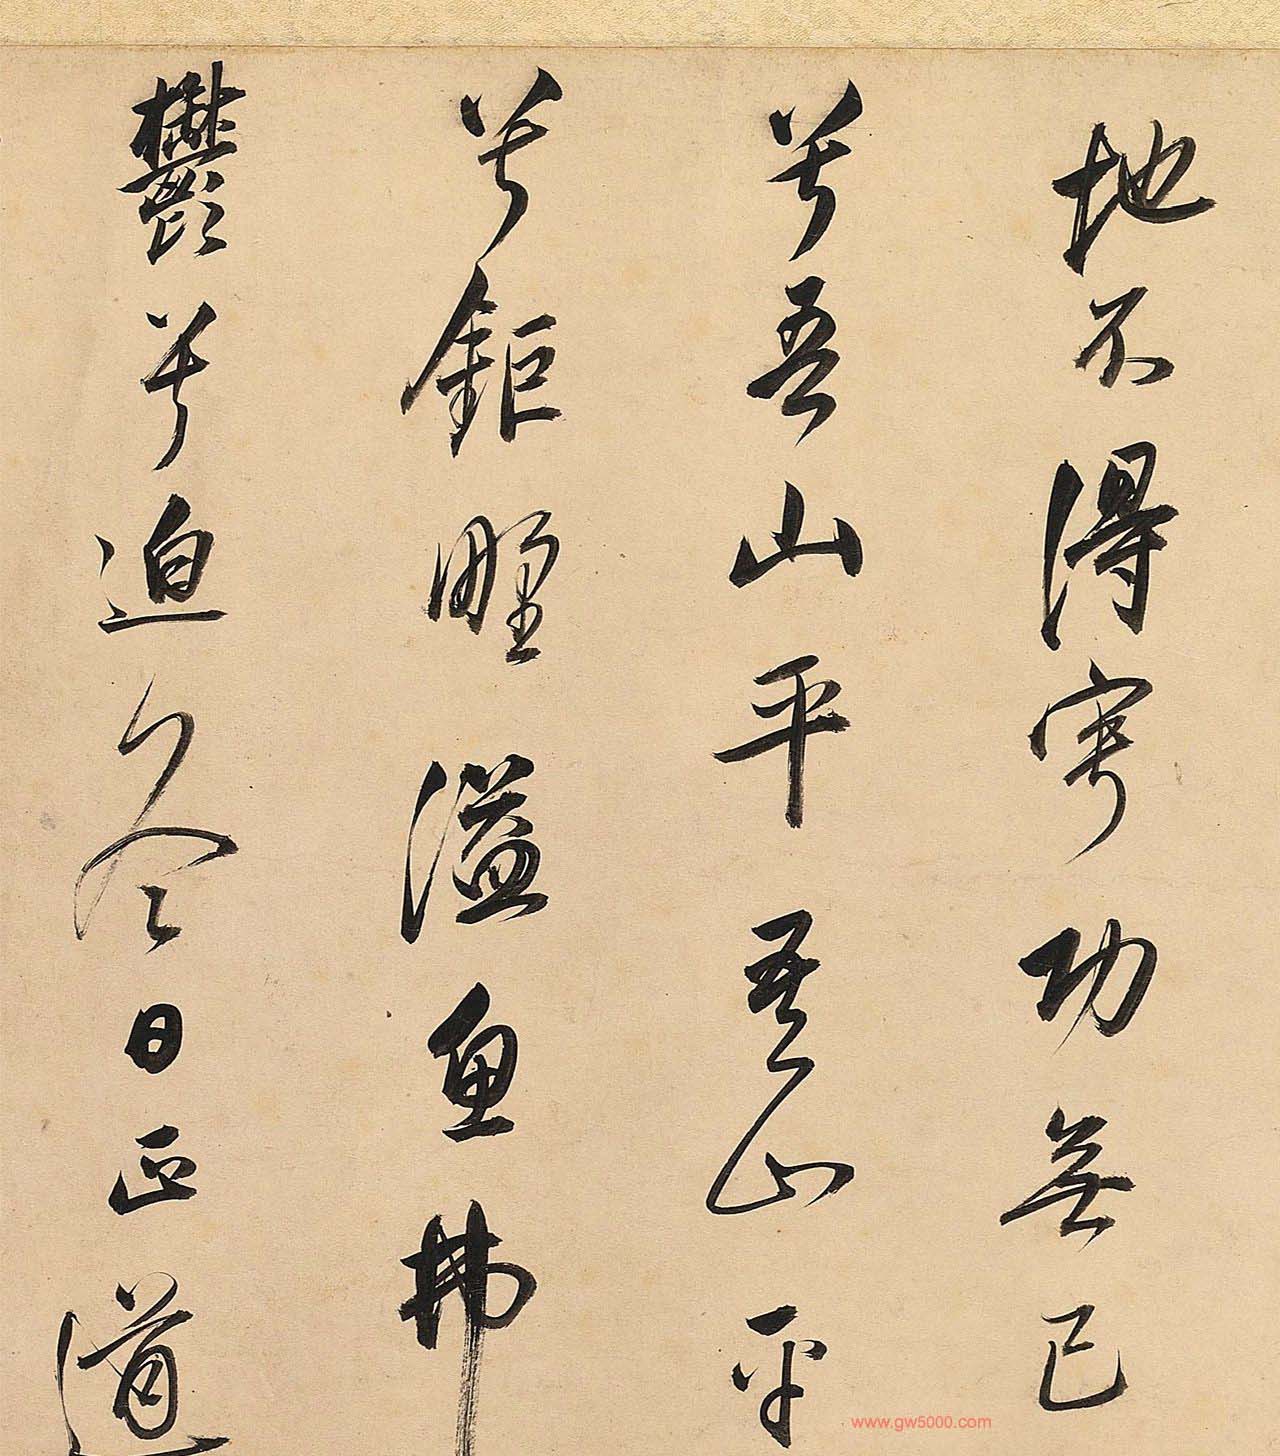 地不得寧功無已
兮吾山平吾山平
兮鉅野溢魚拂
鬱兮迫冬日正道
www.gw5000.com